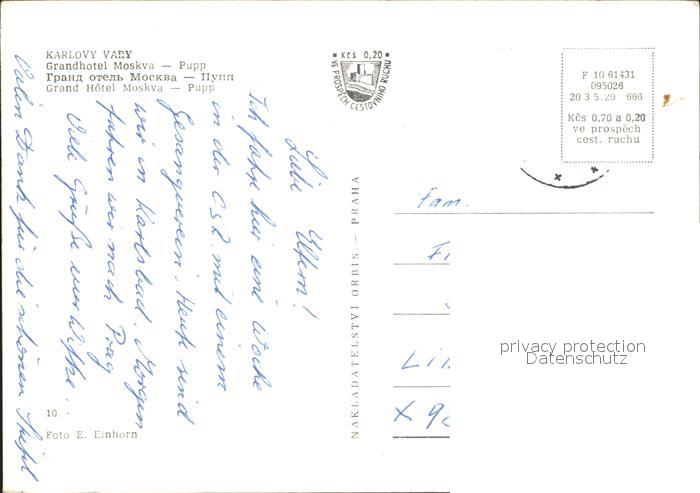 KARLOVY VARY
Grandhotel Moskva — Pupp
Гранд отель Москва — Пупп
Grand Hôtel Moskva — Pupp
Kčs 0,20
VE PROSPĚCH CESTOVNÍHO RUCHU
F 10 61431
095026
20 3 5.29 666
Kčs 0,70 a 0,20
ve prospěch
cest. ruchu
Liebe Eltern!
Ich fahre hier eine Woche
in der CSR mit einem
Gesangverein. Heute sind
wir in Karlsbad. Morgen
fahren wir nach Prag.
Viele Grüße euer
Vielen Dank für die schönen
NAKLADATELSTVÍ ORBIS — PRAHA
Fam.
privacy protection
Datenschutz
10.
Foto E. Einhorn